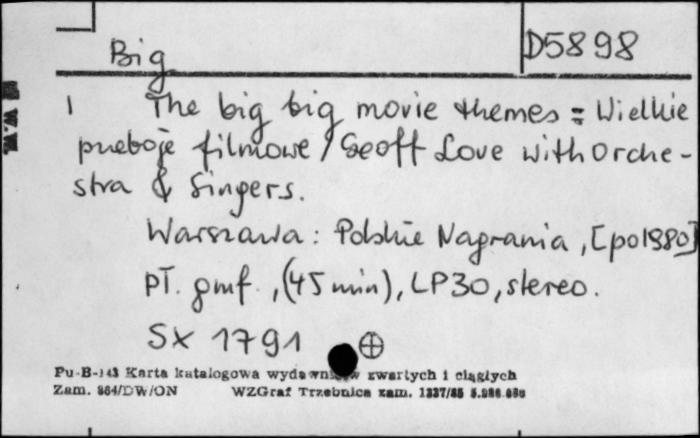 Big
D5898
1 The big big movie themes = Wielkie
przeboje filmowe / Geoff Love with Orche-
stra & Singers.
Warszawa : Polskie Nagrania , [po 1980]
pł. gmf. , (45 min), LP30, stereo.
SX 1791 ⊕
W.W.
Pu-B-143 Karta katalogowa wydawnictw zwartych i ciągłych
Zam. 864/DW/ON WZGraf Trzebnica zam. 1337/85